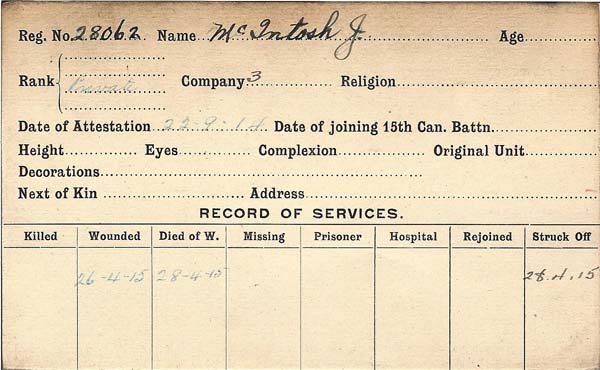 Reg. No. 28062 Name McIntosh J. Age
Rank Private Company 3 Religion
Date of Attestation 22-9-14 Date of joining 15th Can. Battn.
Height Eyes Complexion Original Unit
Decorations
Next of Kin Address
RECORD OF SERVICES.
Killed Wounded Died of W. Missing Prisoner Hospital Rejoined Struck Off
26-4-15 28-4-15 28.4.15